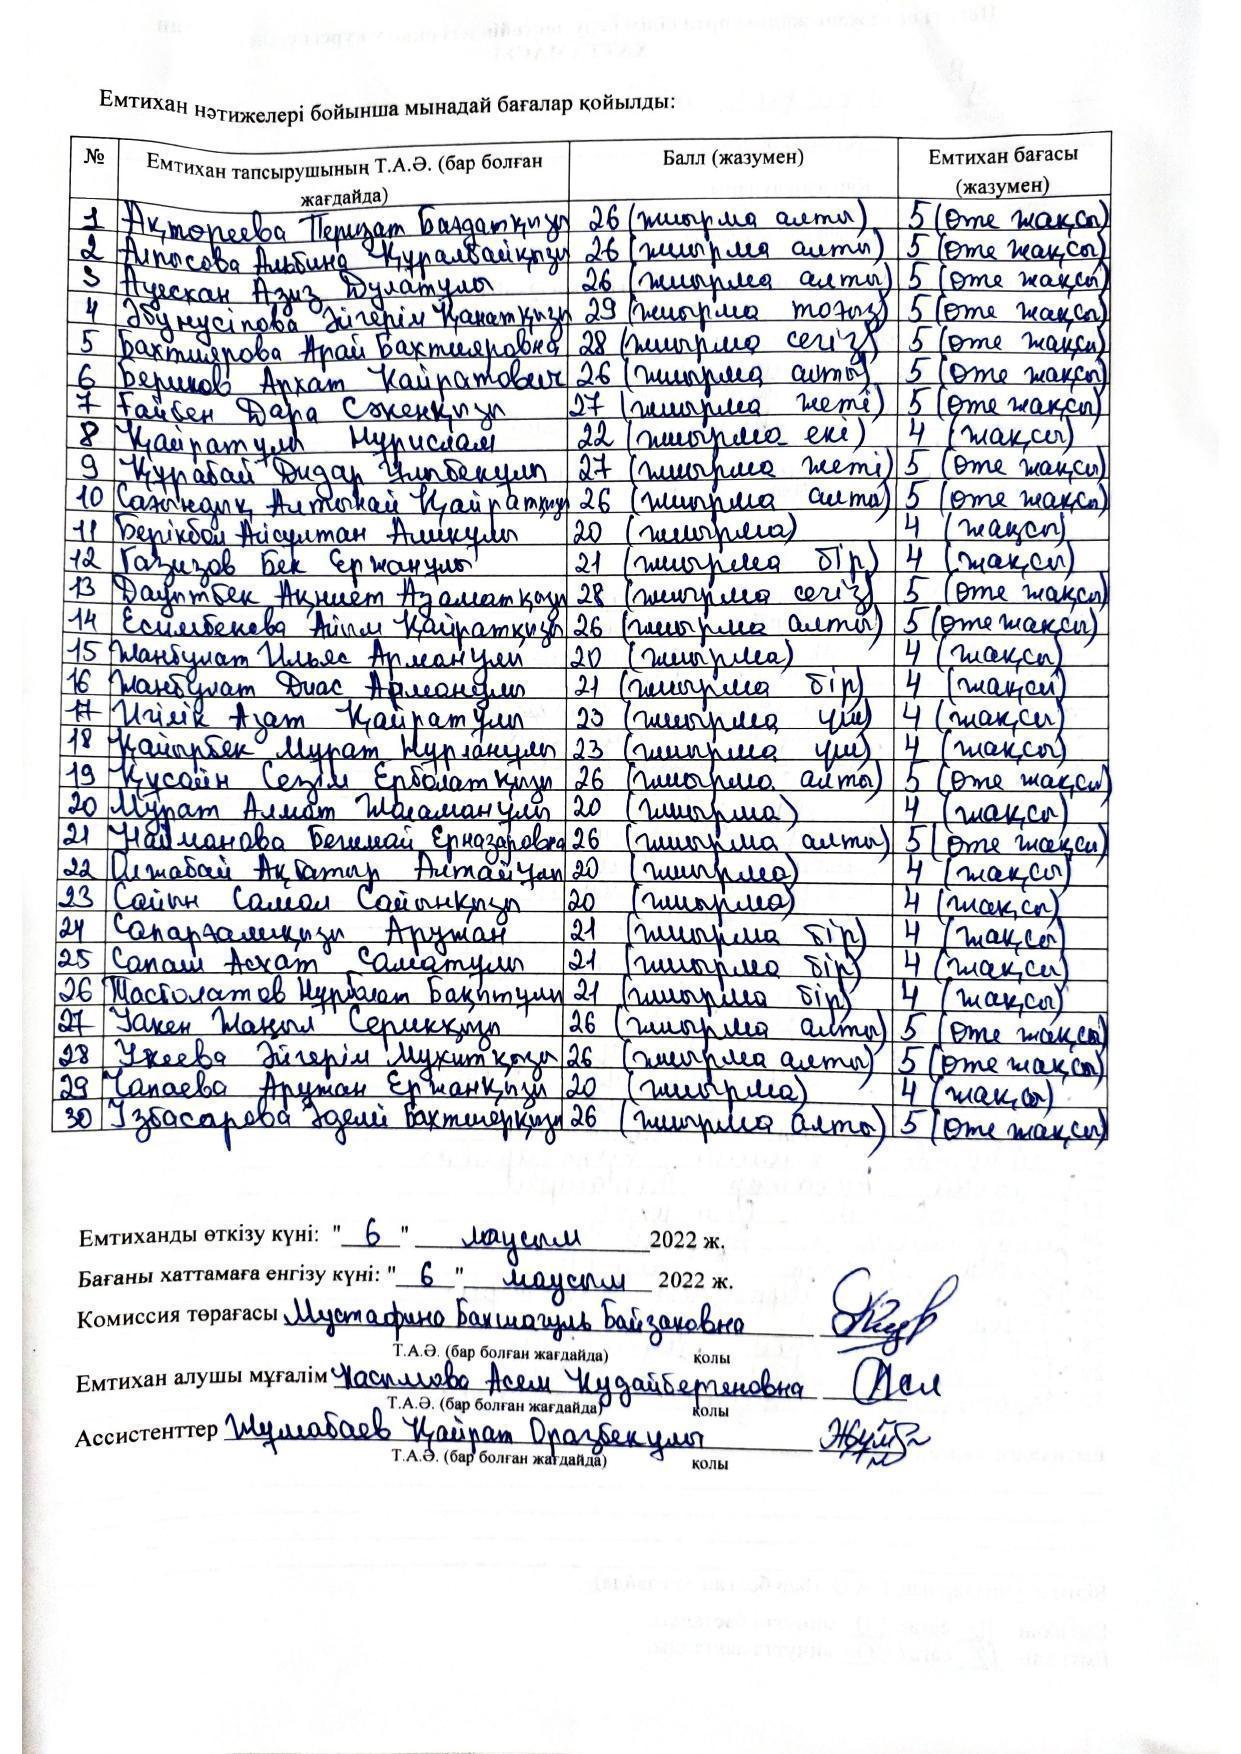 Емтихан нәтижелері бойынша мынадай бағалар қойылды:
№ Емтихан тапсырушының Т.А.Ә. (бар болған жағдайда) Балл (жазумен) Емтихан бағасы (жазумен)
1 Ақтореева Перизат Баздатқызы 26 (жиырма алты) 5 (өте жақсы)
2 Алпысова Альбина Құралбайқызы 26 (жиырма алты) 5 (өте жақсы)
3 Ауесхан Азиз Дулатулы 26 (жиырма алты) 5 (өте жақсы)
4 Әбунусіпова Әйгерім Қанатқызы 29 (жиырма тоғыз) 5 (өте жақсы)
5 Бахтиярова Арай Бахтияровна 28 (жиырма сегіз) 5 (өте жақсы)
6 Бериков Архат Кайратович 26 (жиырма алты) 5 (өте жақсы)
7 Ғайбен Дара Сәкенқызы 27 (жиырма жеті) 5 (өте жақсы)
8 Қайратұлы Нурислам 22 (жиырма екі) 4 (жақсы)
9 Құрабай Дидар 27 (жиырма жеті) 5 (өте жақсы)
10 Сағындық Алтынай Қайратқызы 26 (жиырма алты) 5 (өте жақсы)
11 Берікбол Айсултан 20 (жиырма) 4 (жақсы)
12 Газизов Бек Ержанулы 21 (жиырма бір) 4 (жақсы)
13 Дауытбек Ақниет Азаматқызы 28 (жиырма сегіз) 5 (өте жақсы)
14 Есимбекова Айым Қайратқызы 26 (жиырма алты) 5 (өте жақсы)
15 Жанбулат Ильяс Арманулы 20 (жиырма) 4 (жақсы)
16 Жанбулат Диас Арманулы 21 (жиырма бір) 4 (жақсы)
17 Игілік Азат Қайратулы 23 (жиырма үш) 4 (жақсы)
18 Қайырбек Мурат Нурланулы 23 (жиырма үш) 4 (жақсы)
19 Құсайн Сезім Ерболатқызы 26 (жиырма алты) 5 (өте жақсы)
20 Мұрат Алмат Жағаманулы 20 (жиырма) 4 (жақсы)
21 Найманова Бегимай Ерназаровна 26 (жиырма алты) 5 (өте жақсы)
22 Олжабай Ақбатыр Алтайұлы 20 (жиырма) 4 (жақсы)
23 Сайын Самал Сайынқызы 20 (жиырма) 4 (жақсы)
24 Сапарғалиқызы Аружан 21 (жиырма бір) 4 (жақсы)
25 Сапаш Асхат Саматулы 21 (жиырма бір) 4 (жақсы)
26 Тасболатов Нұрболат Бақытұлы 21 (жиырма бір) 4 (жақсы)
27 Уакен Жаңыл Серикқызы 26 (жиырма алты) 5 (өте жақсы)
28 Укеева Әйгерім Мухитқызы 26 (жиырма алты) 5 (өте жақсы)
29 Чапаева Аружан Ержанқызы 20 (жиырма) 4 (жақсы)
30 Ізбасарова Әделі Бахтиерқызы 26 (жиырма алты) 5 (өте жақсы)
Емтиханды өткізу күні: "6" маусым 2022 ж.
Бағаны хаттамаға енгізу күні: "6" маусым 2022 ж.
Комиссия төрағасы Мустафина Бакшагуль Байзаковна
Т.А.Ә. (бар болған жағдайда) қолы
Емтихан алушы мұғалім Касымова Асем Кудайбергеновна
Т.А.Ә. (бар болған жағдайда) қолы
Ассистенттер Жұмабаев Қайрат Оразбекулы
Т.А.Ә. (бар болған жағдайда) қолы